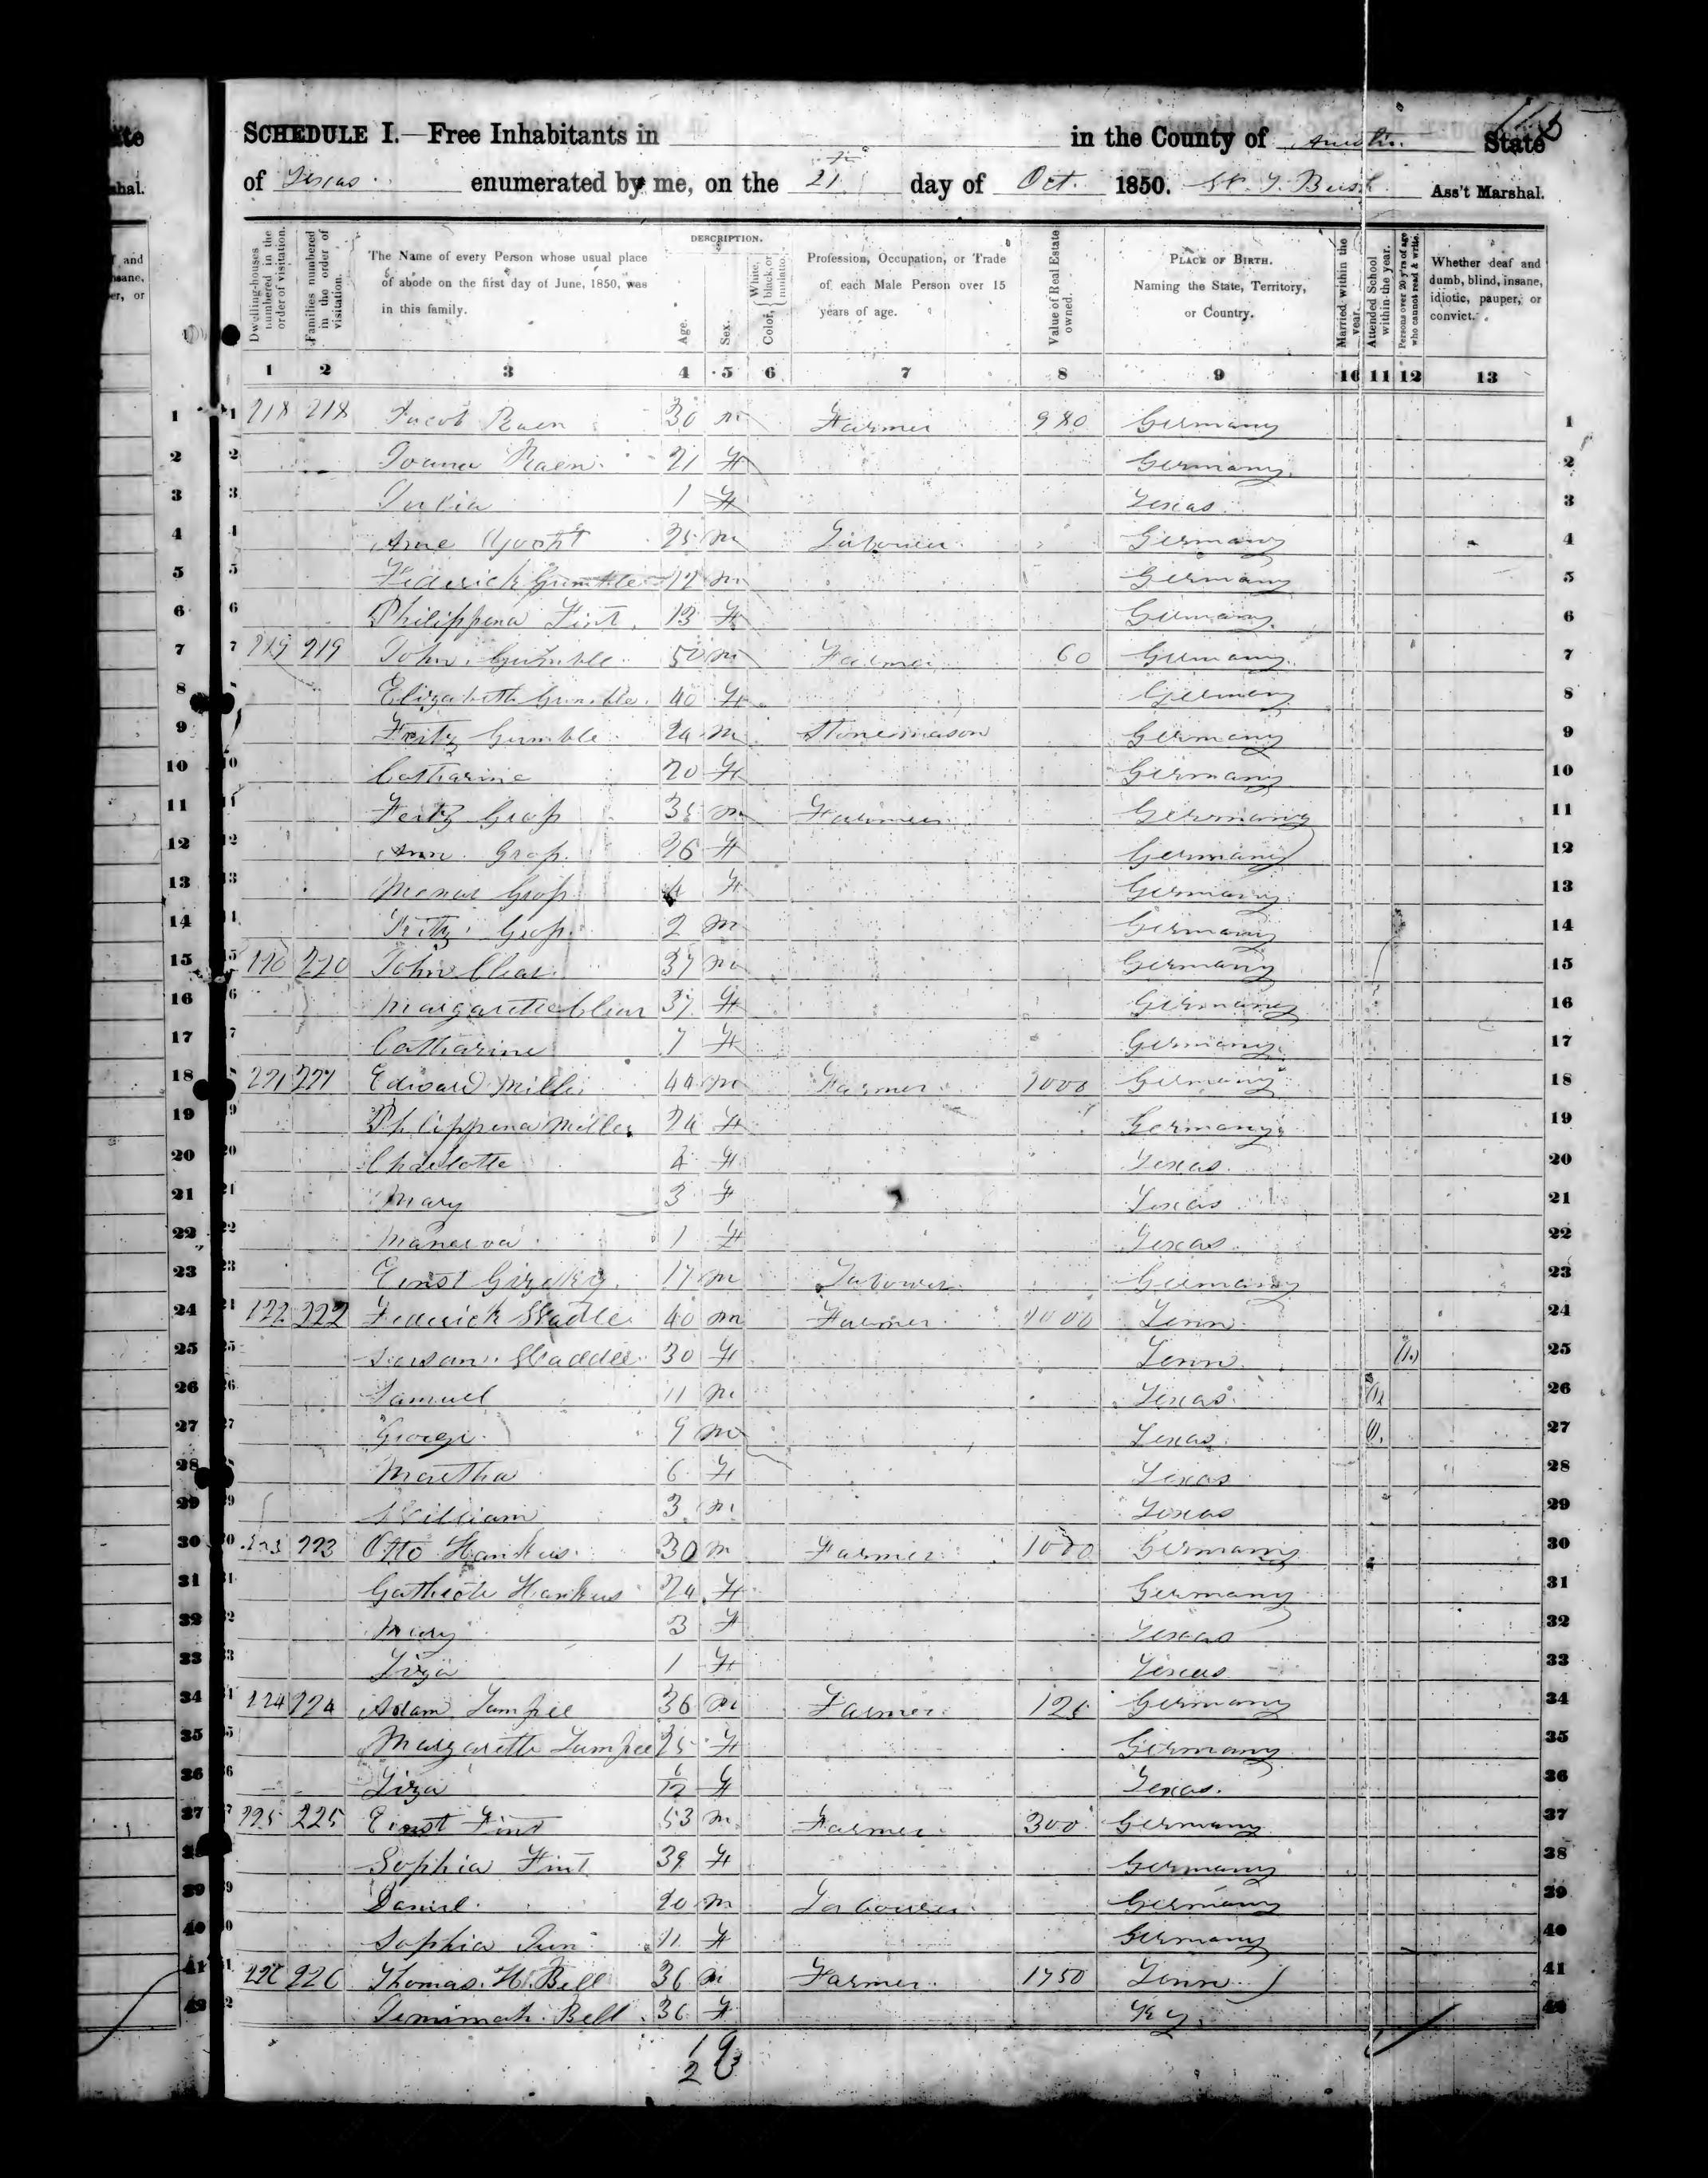 SCHEDULE I.—Free Inhabitants in in the County of Austin State
of Texas enumerated by me, on the 21 day of Oct. 1850. Ass't Marshal.
Dwelling-houses numbered in the order of visitation.
Families numbered in the order of visitation.
The Name of every Person whose usual place of abode on the first day of June, 1850, was in this family.
DESCRIPTION.
Age.
Sex.
Color, White, black, or mulatto.
Profession, Occupation, or Trade of each Male Person over 15 years of age.
Value of Real Estate owned.
PLACE OF BIRTH. Naming the State, Territory, or Country.
Married within the year.
Attended School within the year.
Persons over 20 y'rs of age who cannot read & write.
Whether deaf and dumb, blind, insane, idiotic, pauper, or convict.
1 2 3 4 5 6 7 8 9 10 11 12 13
1 218 218 Jacob Raen 30 m Farmer 980 Germany 1
2 Raen 21 F Germany 2
3 Julia 1 F Texas 3
4 25 m Labourer Germany 4
5 Federick m Germany 5
6 Philippena Fint 13 F Germany 6
7 219 219 John Gumble 50 m Farmer 60 Germany 7
8 Elizabeth Gumble 40 F Germany 8
9 Fritz Gumble 24 m Stonemason Germany 9
10 Catharine 20 F Germany 10
11 Fritz Grop 35 m Farmer Germany 11
12 Ann Grop 26 F Germany 12
13 Grop 4 F Germany 13
14 Fritz Grop 2 m Germany 14
15 220 220 John Clear 37 m Germany 15
16 Margarette Clear 37 F Germany 16
17 Catharine 7 F Germany 17
18 221 221 Edward Miller 44 m Farmer Germany 18
19 Philippena Miller 24 F Germany 19
20 Charlotte 4 F Texas 20
21 Mary 3 F Texas 21
22 Manerva 1 F Texas 22
23 Ernst 17 m Labourer Germany 23
24 222 222 Federick 40 m Farmer Tenn 24
25 30 F Tenn 25
26 Samuel 11 m Texas 26
27 George 9 m Texas 27
28 Martha 6 F Texas 28
29 William 3 m Texas 29
30 223 223 Otto Hankus 30 m Farmer 1000 Germany 30
31 Hankus 24 F Germany 31
32 Mary 3 F Texas 32
33 Liza 1 F Texas 33
34 224 224 Adam 36 m Farmer Germany 34
35 Margarette 25 F Germany 35
36 Liza 6/12 F Texas 36
37 225 225 Ernst Fint 53 m Farmer 300 Germany 37
38 Sophia Fint 39 F Germany 38
39 Daniel 20 m Labourer Germany 39
40 Sophia 11 F Germany 40
41 226 226 Thomas H. Bell 36 m Farmer 1750 Tenn 41
42 Jemimah Bell 36 F Ky 42